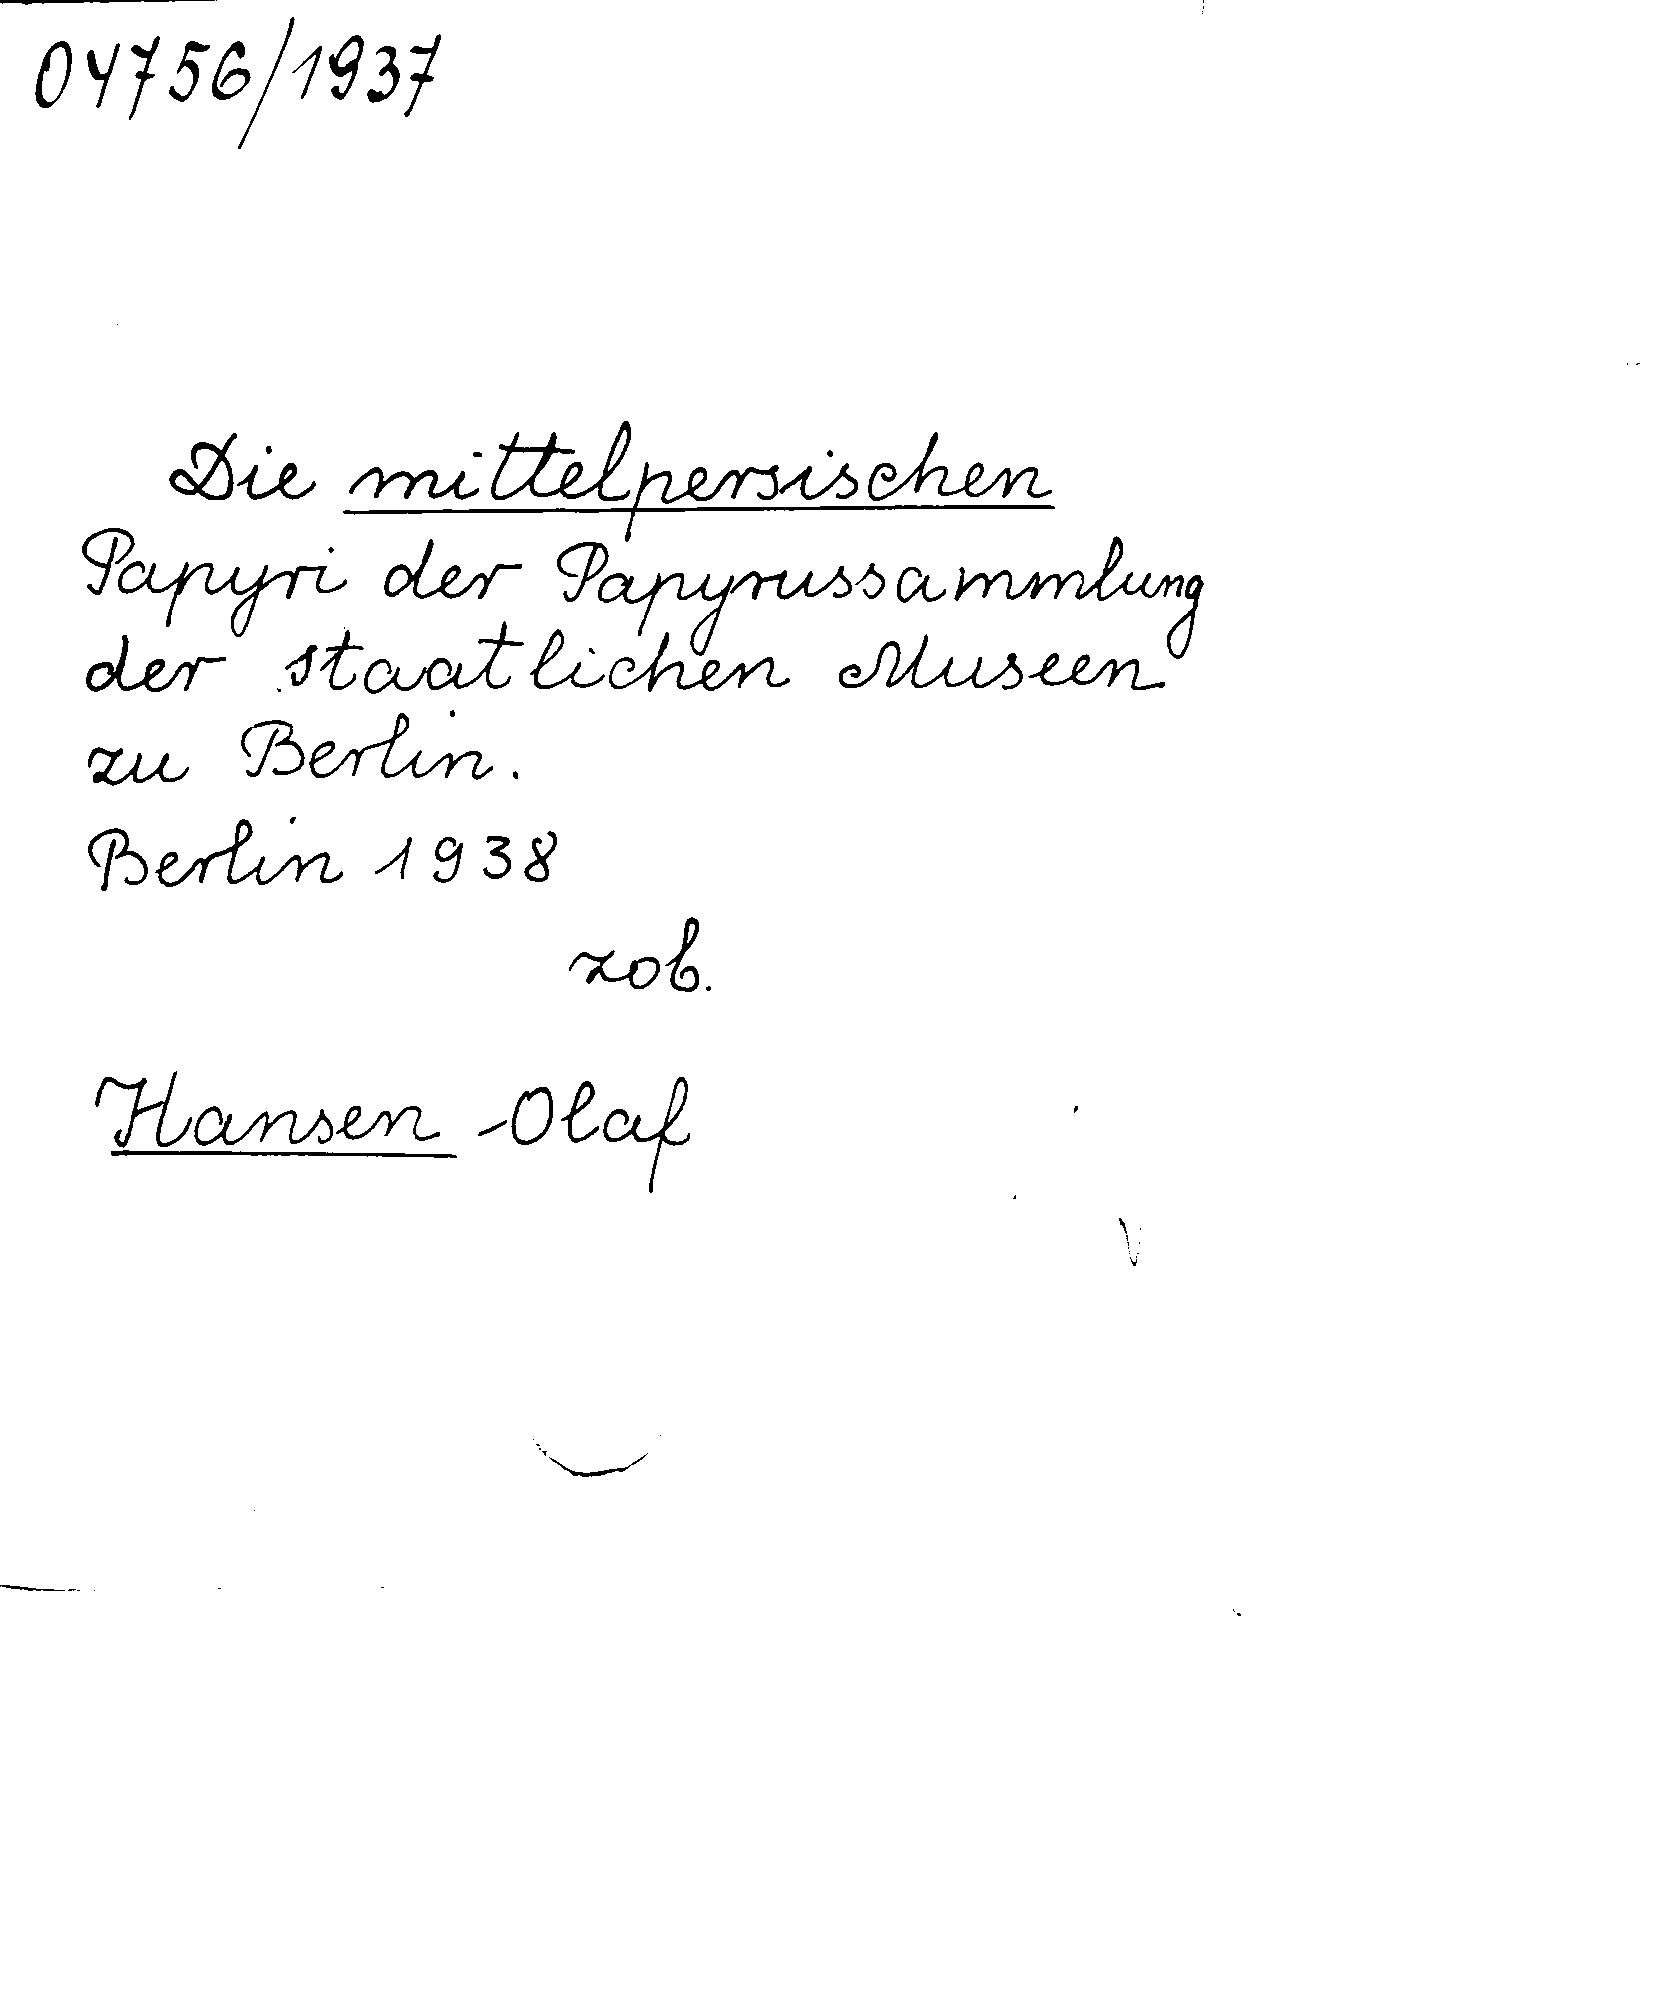 04756/1937
Die mittelpersischen
Papyri der Papyrussammlung
der staatlichen Museen
zu Berlin.
Berlin 1938
zob.
Hansen - Olaf